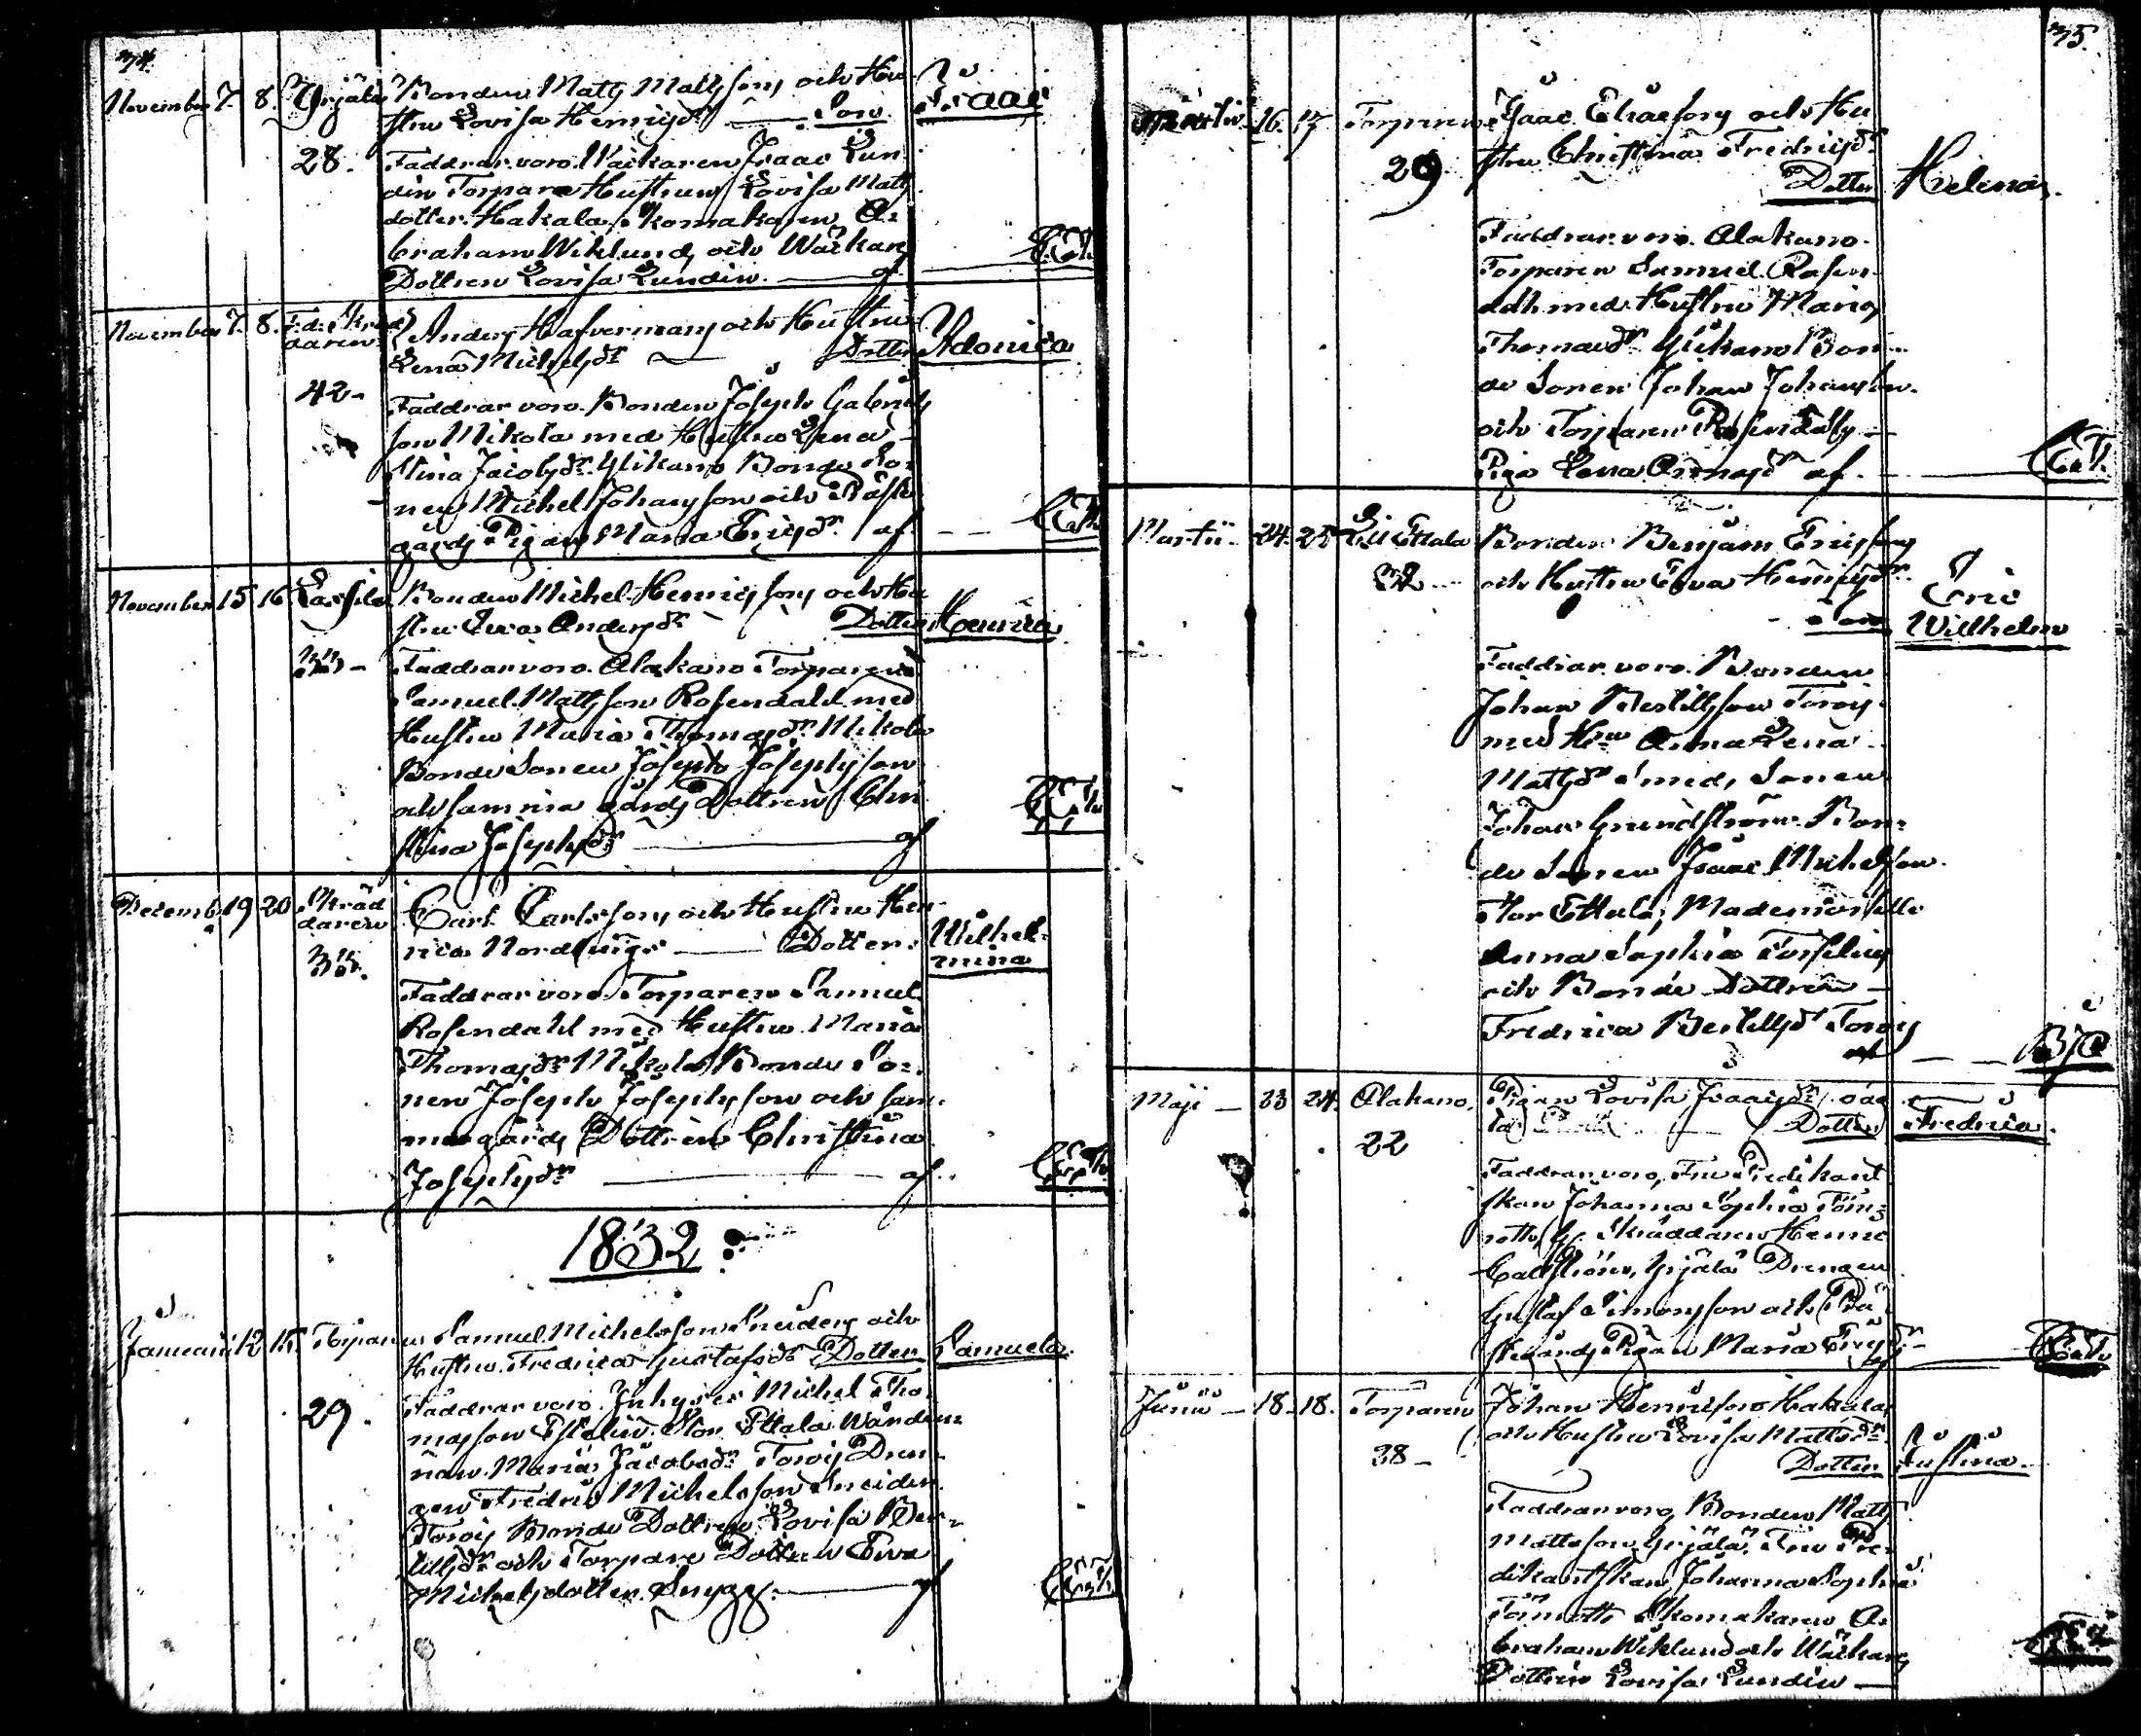 74.
November 7. 8. Yrjälä Bonden Matts Mattsons och Hu
stru Lovisa Henricsdr Son Isaac
28. Faddrar voro. Waktaren Isaac Lun
din Torpare Hustrun Lovisa Matts
dotter Hakala, skomakaren A:
braham Wiklund, och Waktare
Dottren Lovisa Lundin. af
November 7. 8. F.d. Skräd
daren Anders Hafvermans och Hustru
Lena Michelsdr Dotter Adonica
42. Faddrar voro. Bonden Joseph Gabriels
son Mikola med Hustru Lena
Stina Jacobsdr. Ylikano Bonde So:
nen Michel Johansson och Präst
gårds Pigan Maria Ericsdr. af
November 15 16 Lassila Bonden Michel Henricsons och Hu
stru Eva Andersdr Dotter Henrica
33 Faddrar voro. Alakano Torparen
Samuel Mattsson Rosendahl med
Hustru Maria Thomasdr. Mikola
Bonde Sonen Joseph Josephsson
och samma gårds Dottren Chri
stina Josephsdr af
Decemb. 19 20 Skräd
daren Carl Carlssons och Hustru Hen
rica Nordlings Dotter. Wilhel-
mina
35. Faddrar voro. Torparen Samuel
Rosendahl med Hustru Maria
Thomasdr Mikola Bonde So:
nen Joseph Josephsson och sam:
ma gårds Dottren Christina
Josephsdr af
1832
Januarii 12 15. Torparen Samuel Michelsson Sneiders och
Hustru Fredrica Gustafsdr Dotter Samuela.
29. Faddrar voro. Inhyses Michel Tho
masson Stor Ettala Wärdin
nan Maria Jacobsdr Torois Dren
gen Fredric Michelsson Sneider
Torois Bonde Dottren Lovisa Ber-
tillsdr och Torpare Dottren Eva
Michelsdotter Snygg. af
75.
Martii 16. 17 Torparen Isaac Eliaesons och Hu
stru Christina Fredricsdr.
29 Dotter Helena.
Faddrar voro. Alakano
Torparen Samuel Rosen
dahl med Hustru Maria
Thomasdr Ylikano Bon-
de Sonen Johan Johansson
och Torparen Rosendahls
Piga Lena Andersdr af
Martii 24. 25 Lill Ettala Bonden Benjam Ericsons
32 och Hustru Eva Henricsdr.
Son Eric
Wilhelm
Faddrar voro. Bonden
Johan Bertillsson Torois
med Hu Anna Lena
Mattsdr Smeds Sonen
Johan Grundström. Bon-
de Sonen Isaac Michelsson
Stor Ettala, Mademoiselle
Anna Sophia Forselius
och Bonde Dottren
Fredrica Bertillsdr Torois
af
Maji 23 24. Alakano. Pigan Lovisa Isaacsdr oäc
ta Dotter Fredrica.
22 Faddrar voro, Fru Predikant
skan Johanna Sophia Törn:
roth, Skräddaren Henric
Callström, Yrjälä Drengen
Gustaf Simonsson och Prä
stgårds Pigan Maria Ericsdr
Junii 18. 18. Torparen Johan Henricsson Hakalas
och Hustru Lovisa Mattsdr.
38 Dotter Justina.
Faddrar voro, Bonden Matts
Mattsson Yrjälä, Fru Pre-
dikantskan Johanna Sophia
Törnroth Skomakaren A:
braham Wiklund och Waktare
Dottren Lovisa Lundin